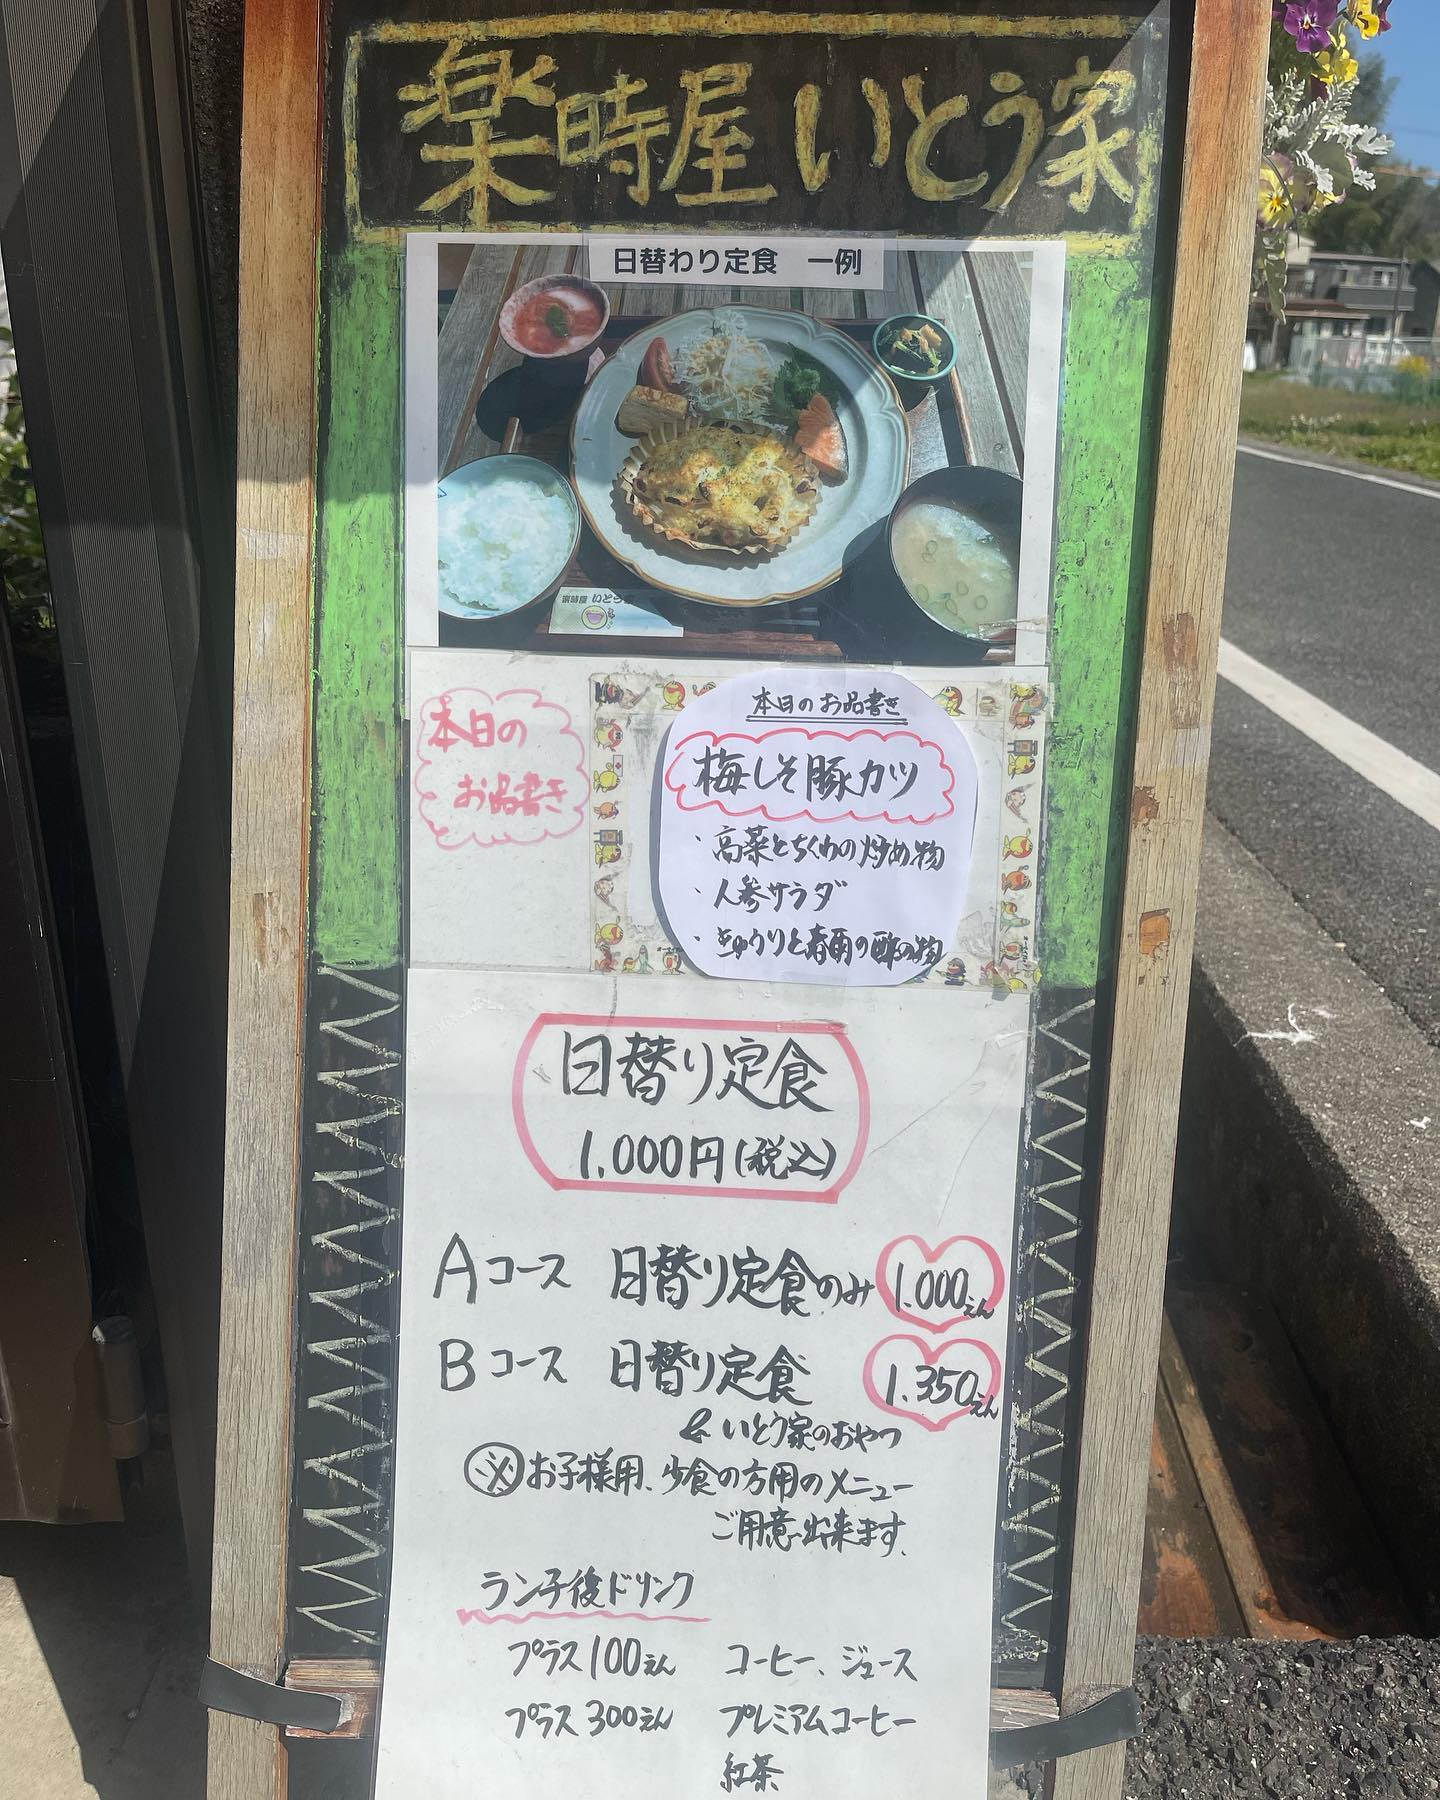 楽時屋 いとう家
日替わり定食 一例
楽時屋 いとう家
本日の
お品書き
本日のお品書き
梅しそ豚カツ
・高菜とちくわの炒め物
・人参サラダ
・きゅうりと春雨の酢の物
日替り定食
1.000円(税込)
Aコース 日替り定食のみ 1.000えん
Bコース 日替り定食 1.350えん
& いとう家のおやつ
※お子様用、少食の方用のメニュー
ご用意出来ます。
ランチ後ドリンク
プラス100えん コーヒー、ジュース
プラス300えん プレミアムコーヒー
紅茶